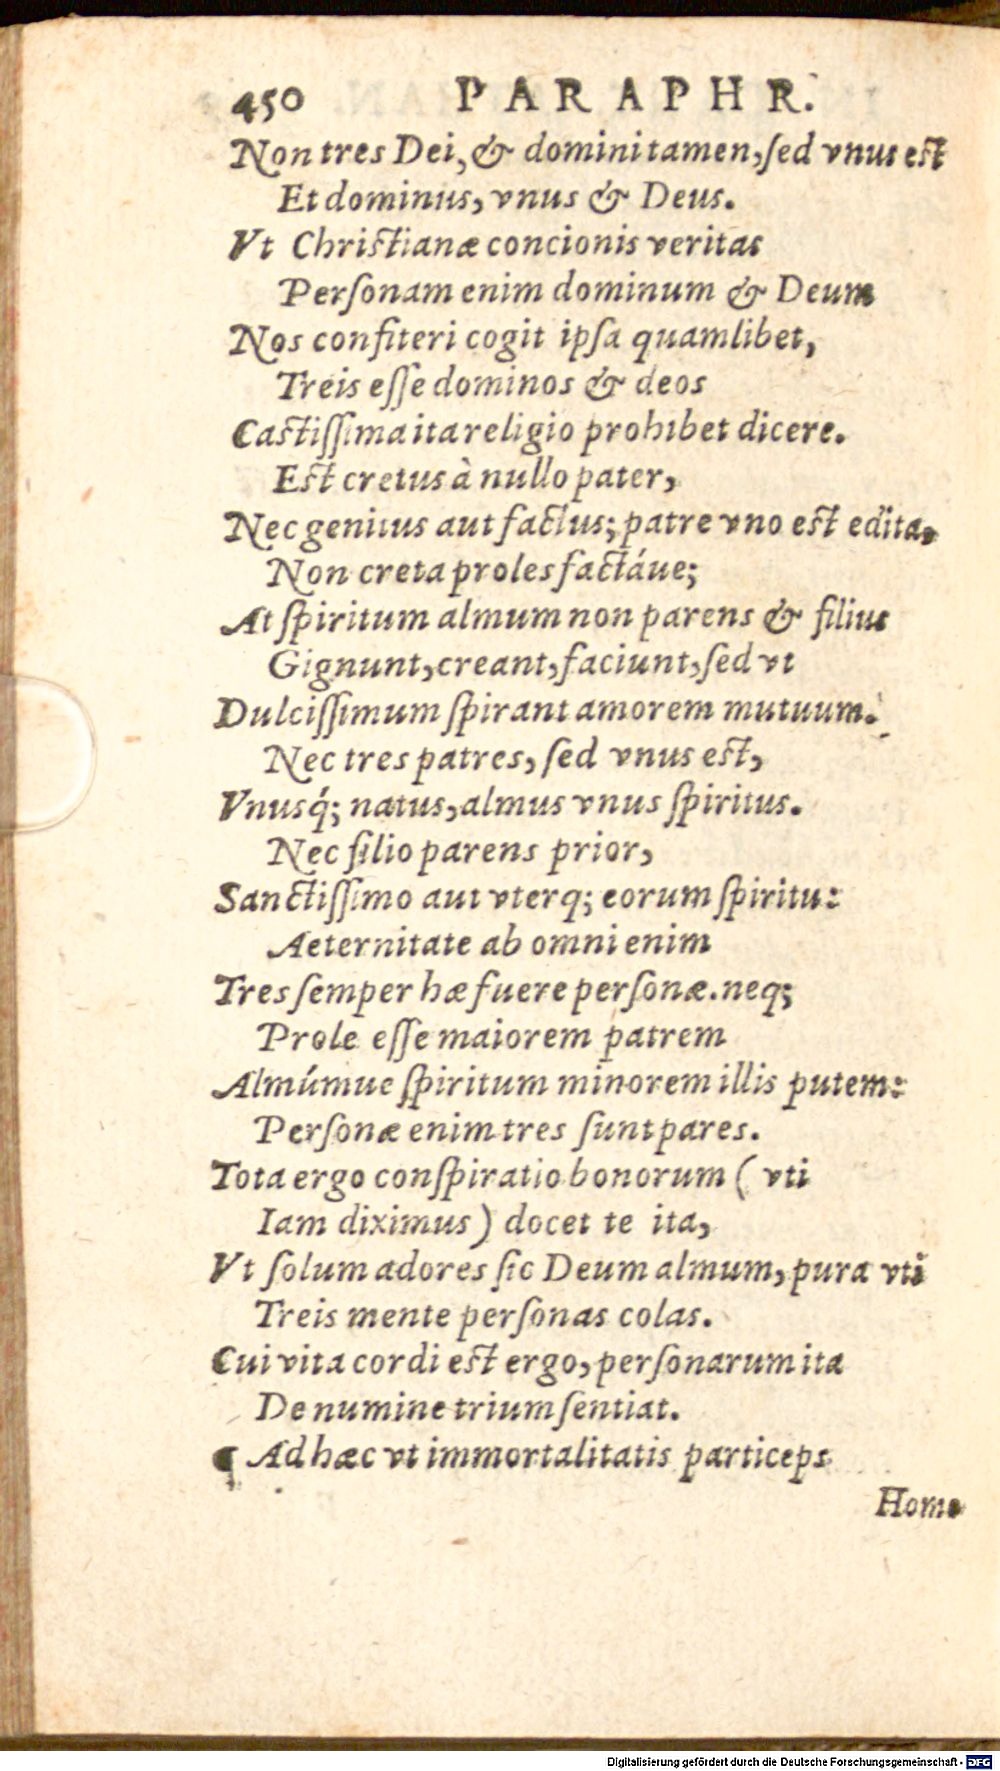 450 PARAPHR.
Non tres Dei, & domini tamen, sed vnus est
Et dominus, vnus & Deus.
Vt Christianæ concionis veritas
Personam enim dominum & Deum
Nos confiteri cogit ipsa quamlibet,
Treis esse dominos & deos
Castissima ita religio prohibet dicere.
Est cretus à nullo pater,
Nec genitus aut factus; patre vno est edita,
Non creta proles factáue;
At spiritum almum non parens & filius
Gignunt, creant, faciunt, sed vt
Dulcissimum spirant amorem mutuum.
Nec tres patres, sed vnus est,
Vnusq́; natus, almus vnus spiritus.
Nec filio parens prior,
Sanctissimo aut vterq; eorum spiritu:
Aeternitate ab omni enim
Tres semper hæ fuere personæ. neq;
Prole esse maiorem patrem
Almúmue spiritum minorem illis putem:
Personæ enim tres sunt pares.
Tota ergo conspiratio bonorum ( vti
Iam diximus ) docet te ita,
Vt solum adores sic Deum almum, pura vti
Treis mente personas colas.
Cui vita cordi est ergo, personarum ita
De numine trium sentiat.
¶ Ad hæc vt immortalitatis particeps
Homo
Digitalisierung gefördert durch die Deutsche Forschungsgemeinschaft - DFG